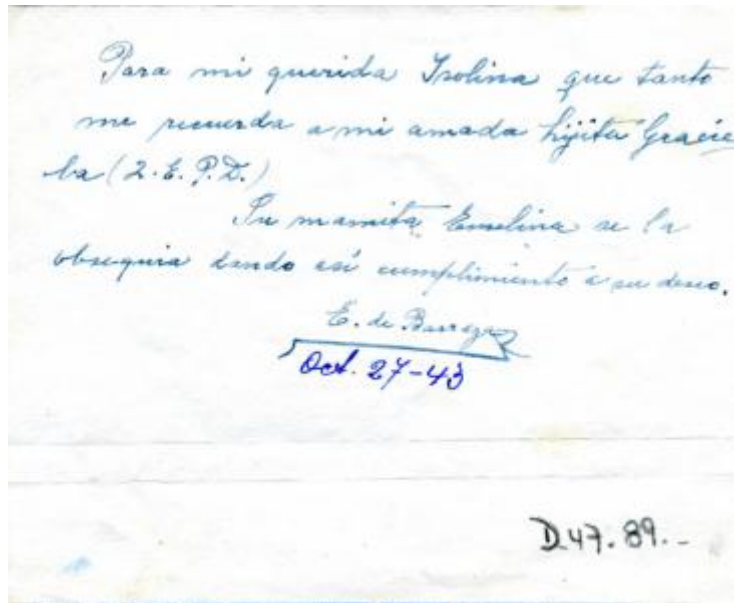 Para mi querida Isolina que tanto
me recuerda a mi amada hijita Gracie
la (Q.E.P.D.)
Su mamita Emelina se la
obsequia dando así cumplimiento a su deseo.
E. de
Oct. 27-43
D.47.89.-